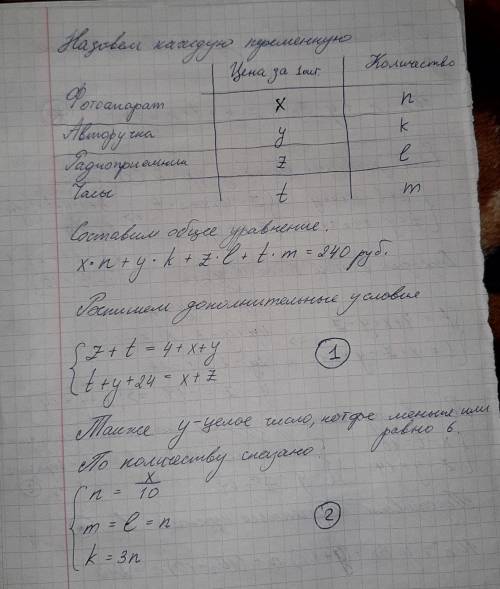 Назовем каждую переменную
Цена за 1 шт. Количество
Фотоапарат x n
Авторучка y k
Радиоприемник z l
Часы t m
Составим общее уравнение.
x·n + y·k + z·l + t·m = 240 руб.
Распишем дополнительные условия
z + t = 4 + x + y
1
t + y + 24 = x + z
Также y - целое число, которое меньше или
равно 6.
По количеству сказано
n = x/10
m = l = n
2
k = 3n